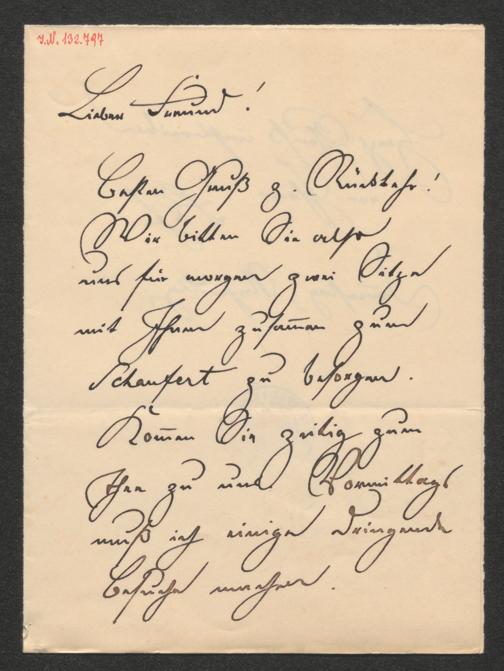 J.N. 132.797
Lieber Freund!
Besten Gruß z. Rückkehr!
Wir bitten Sie also
uns für morgen zwei Sitze
mit Ihnen zusam̅en zum
Schaufert zu besorgen.
Kom̅en Sie zeitig zum
Thee zu uns Vormittags
muß ich einige dringende
Besuche machen.